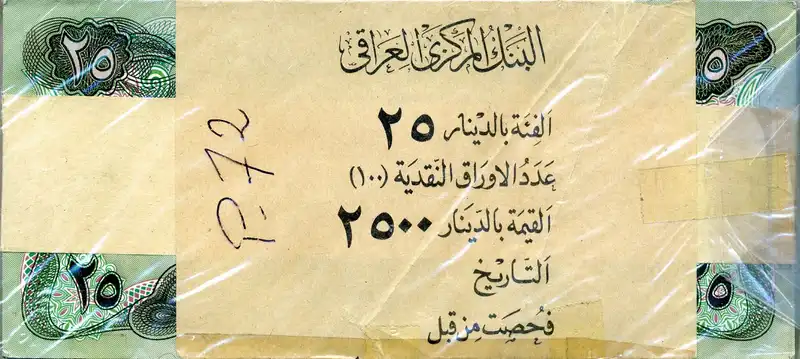 البنك المركزي العراقي
الفئة بالدينار ٢٥
عدد الاوراق النقدية (١٠٠)
القيمة بالدينار ٢٥٠٠
التاريخ
فحصت من قبل
P-72
٢٥
٢٥
٢٥
٢٥